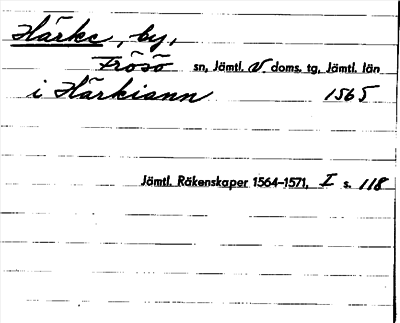 Härke, by,
Frösö sn, Jämtl. V. doms. tg, Jämtl. län
i Härkiann 1565
Jämtl. Räkenskaper 1564-1571, I s. 118